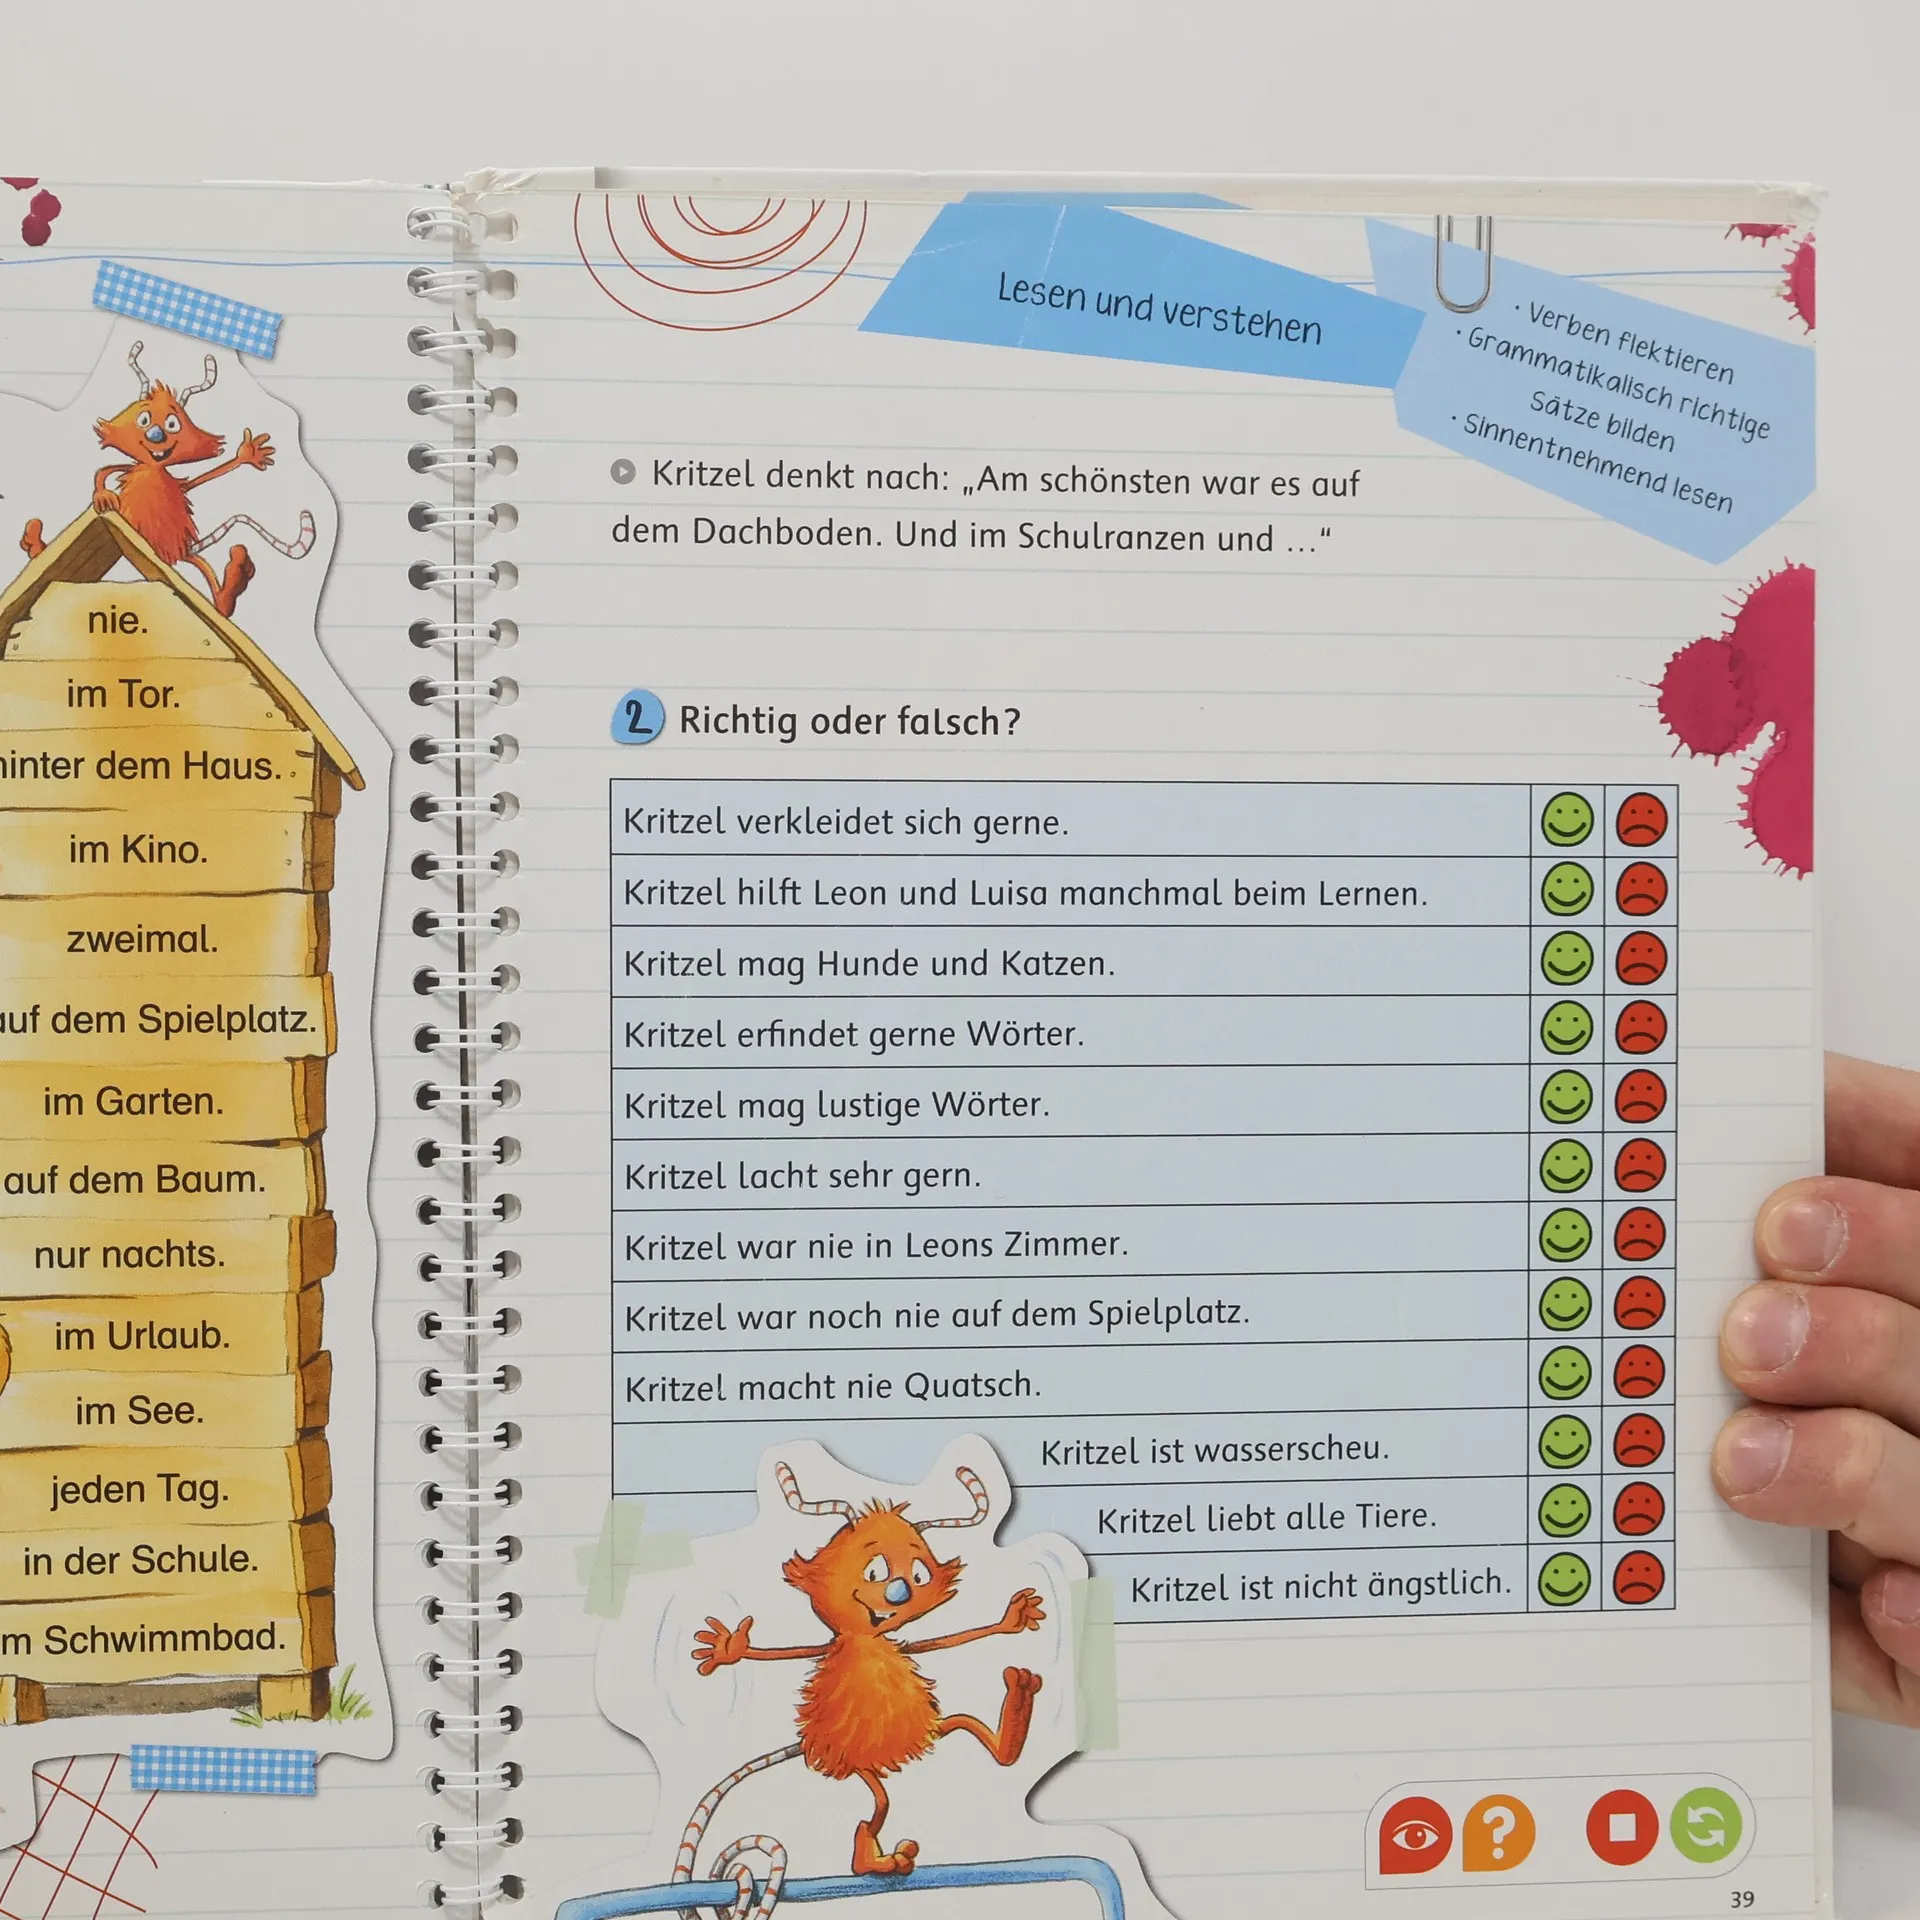 nie.
im Tor.
hinter dem Haus.
im Kino.
zweimal.
auf dem Spielplatz.
im Garten.
auf dem Baum.
nur nachts.
im Urlaub.
im See.
jeden Tag.
in der Schule.
m Schwimmbad.
Lesen und verstehen
· Verben flektieren
· Grammatikalisch richtige
Sätze bilden
· Sinnentnehmend lesen
Kritzel denkt nach: „Am schönsten war es auf
dem Dachboden. Und im Schulranzen und ...“
2 Richtig oder falsch?
Kritzel verkleidet sich gerne.
Kritzel hilft Leon und Luisa manchmal beim Lernen.
Kritzel mag Hunde und Katzen.
Kritzel erfindet gerne Wörter.
Kritzel mag lustige Wörter.
Kritzel lacht sehr gern.
Kritzel war nie in Leons Zimmer.
Kritzel war noch nie auf dem Spielplatz.
Kritzel macht nie Quatsch.
Kritzel ist wasserscheu.
Kritzel liebt alle Tiere.
Kritzel ist nicht ängstlich.
?
39